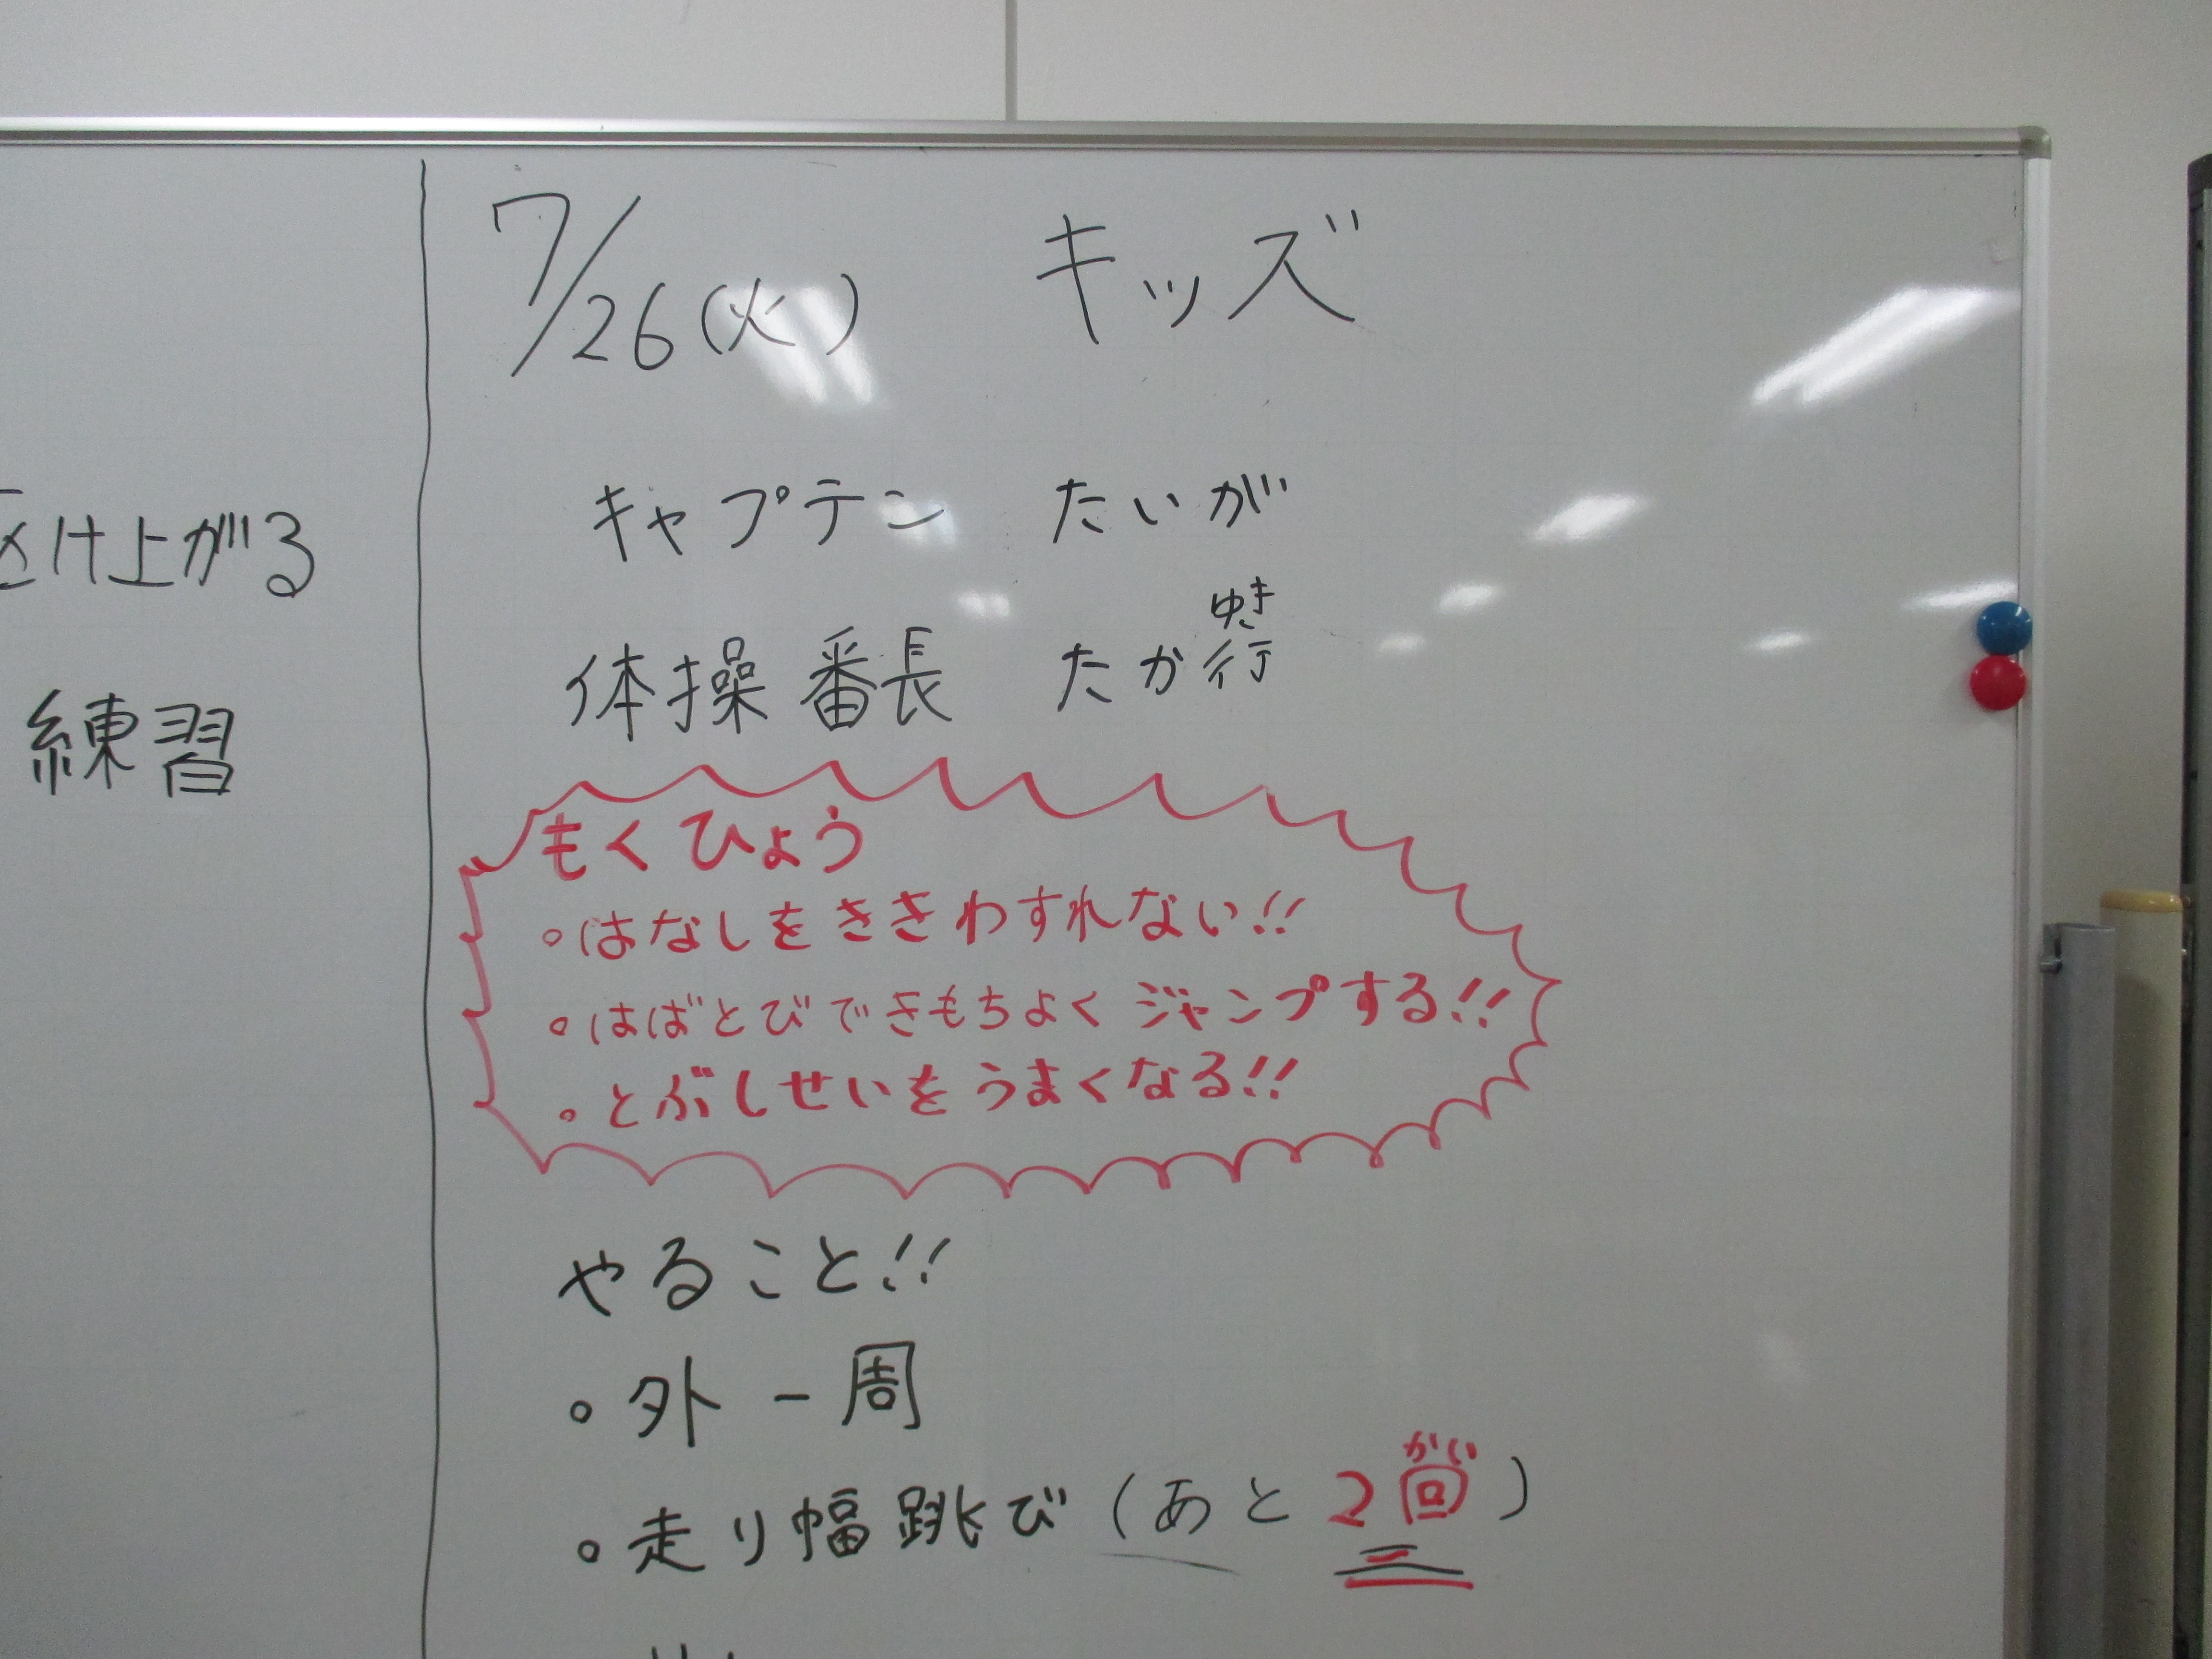 け上がる
練習
7/26(火) キッズ
キャプテン たいが
体操番長 たか行
ゆき
もくひょう
・はなしをききわすれない!!
・はばとびできもちよくジャンプする!!
・とぶしせいをうまくなる!!
やること!!
・外一周
・走り幅跳び(あと2回)
かい